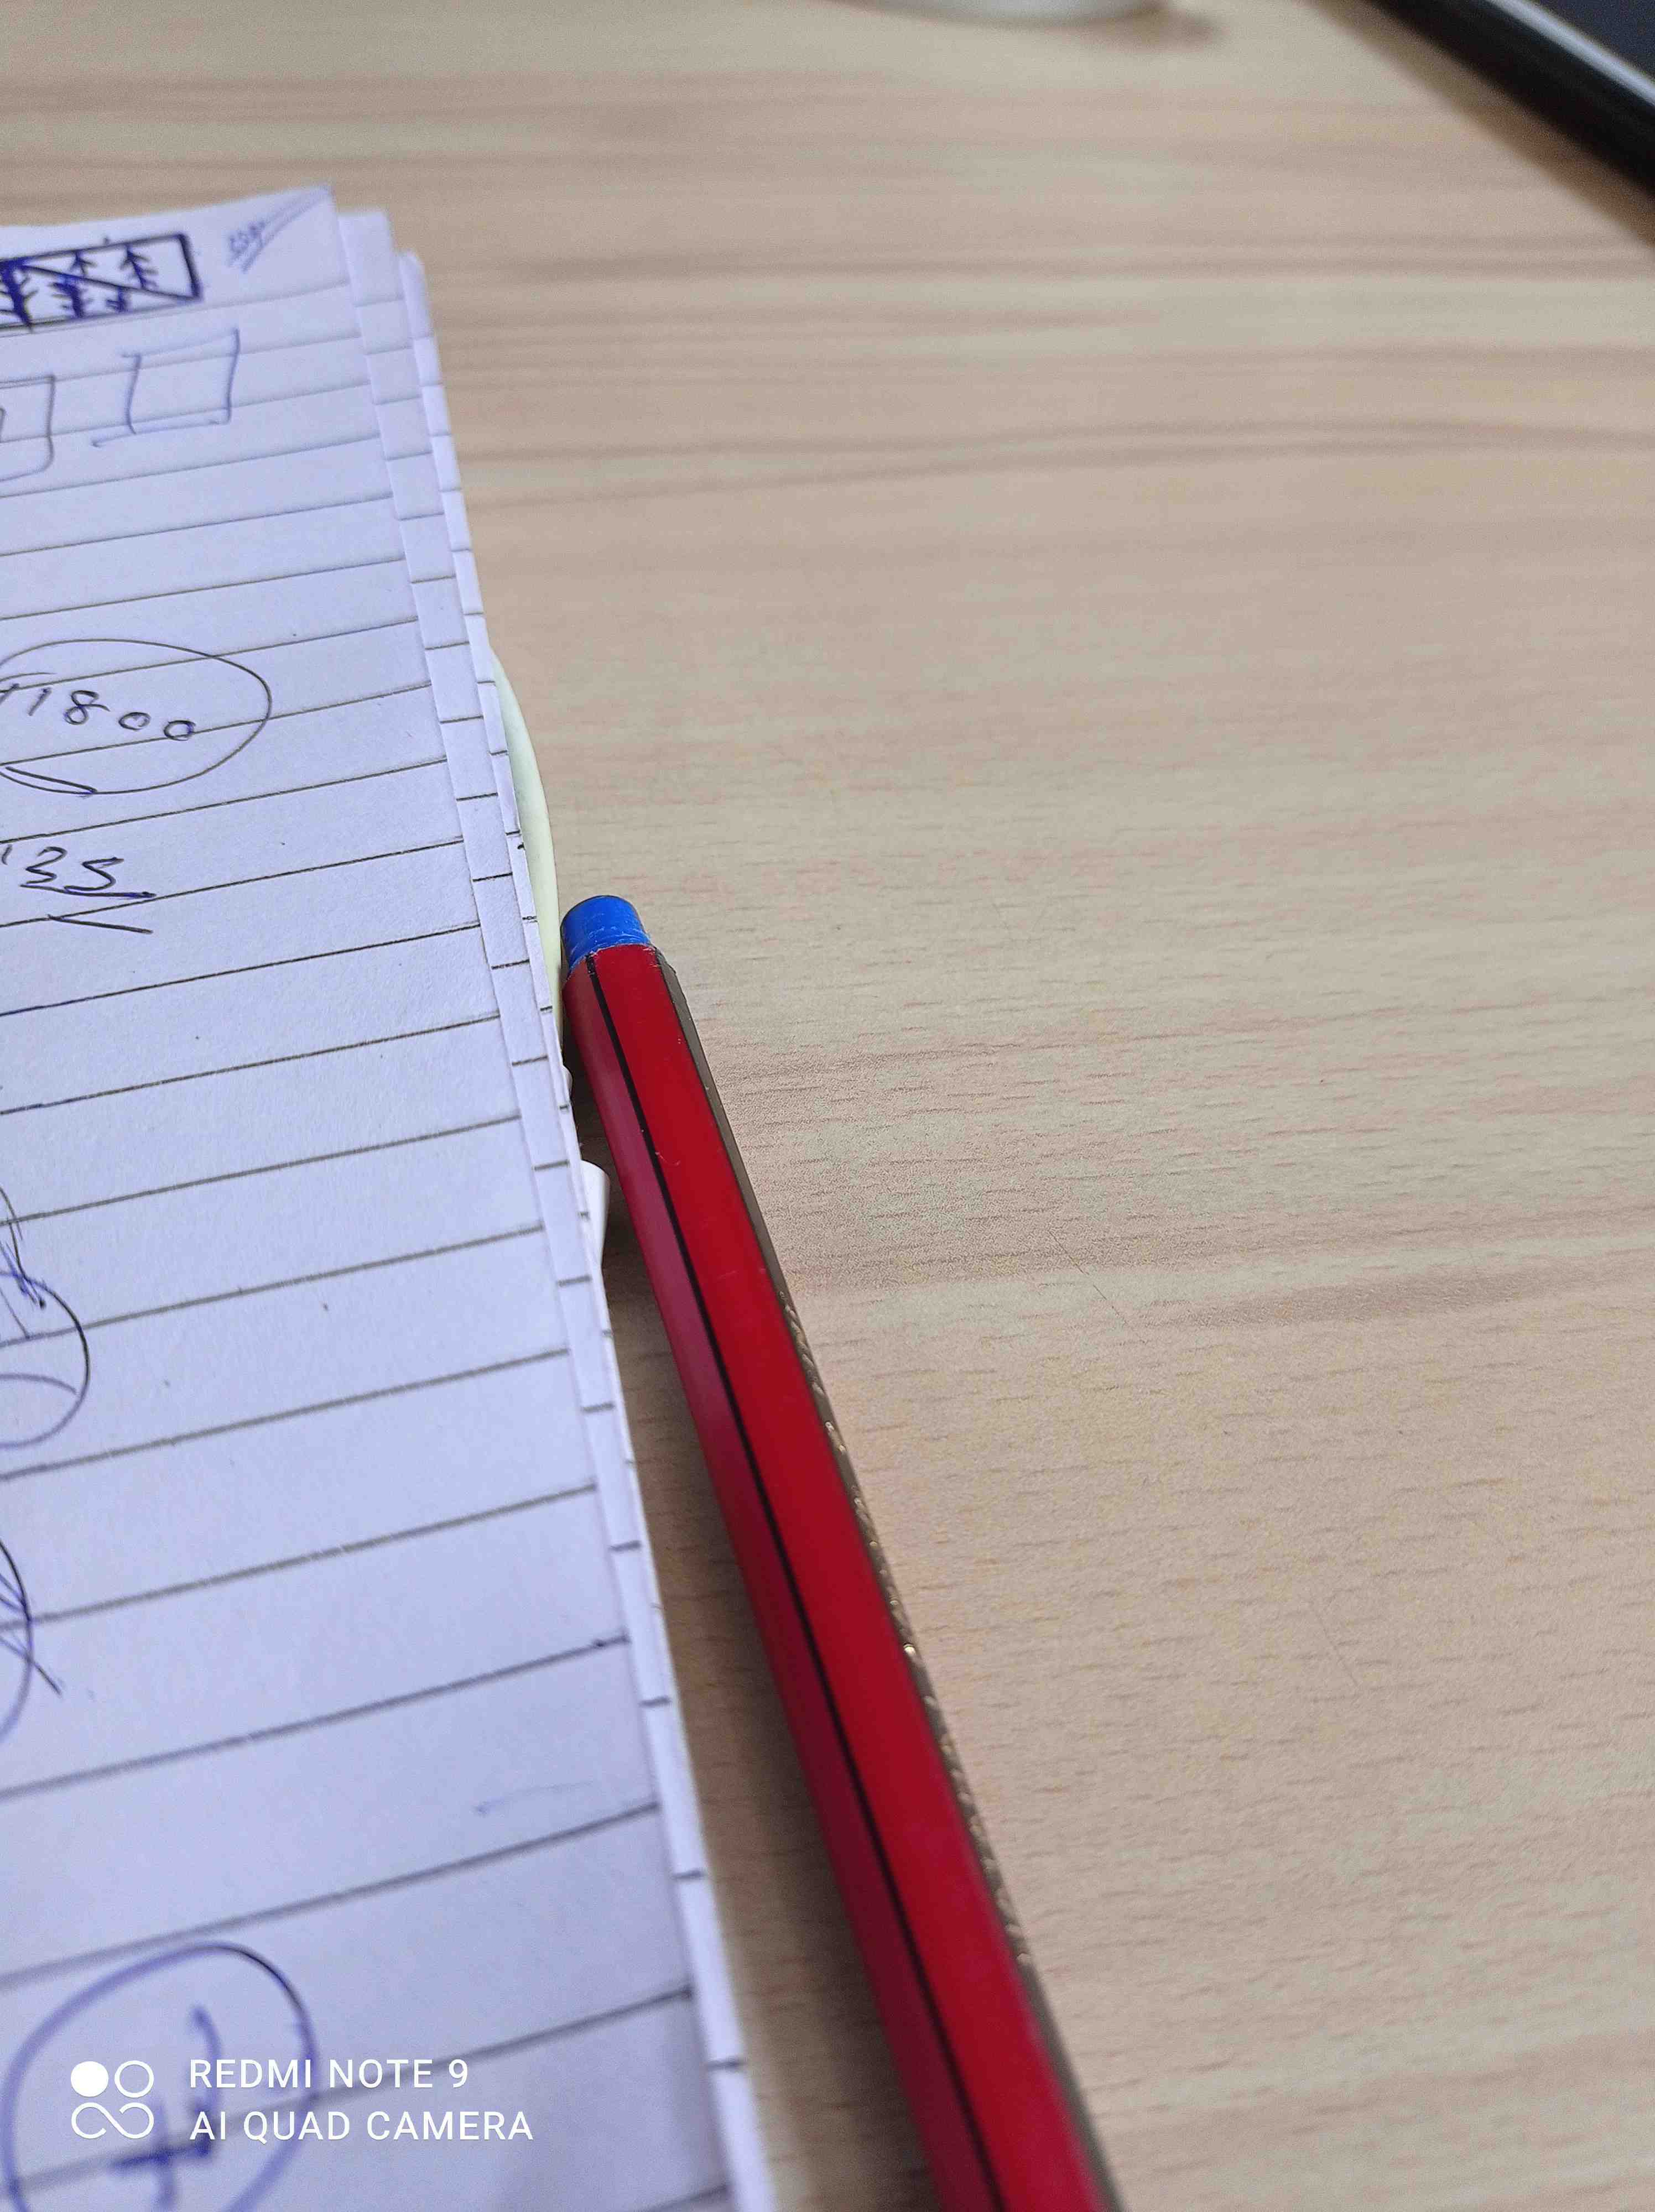 11800
35
REDMI NOTE 9
AI QUAD CAMERA